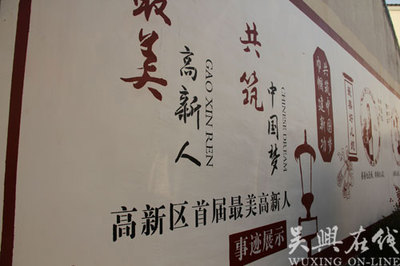 最美
高新人
GAO XIN REN
共筑
中国梦
CHINESE DREAM
共筑中国梦
巾帼建新功
高新区首届最美高新人
事迹展示
吴興在线
WUXING ON-LINE